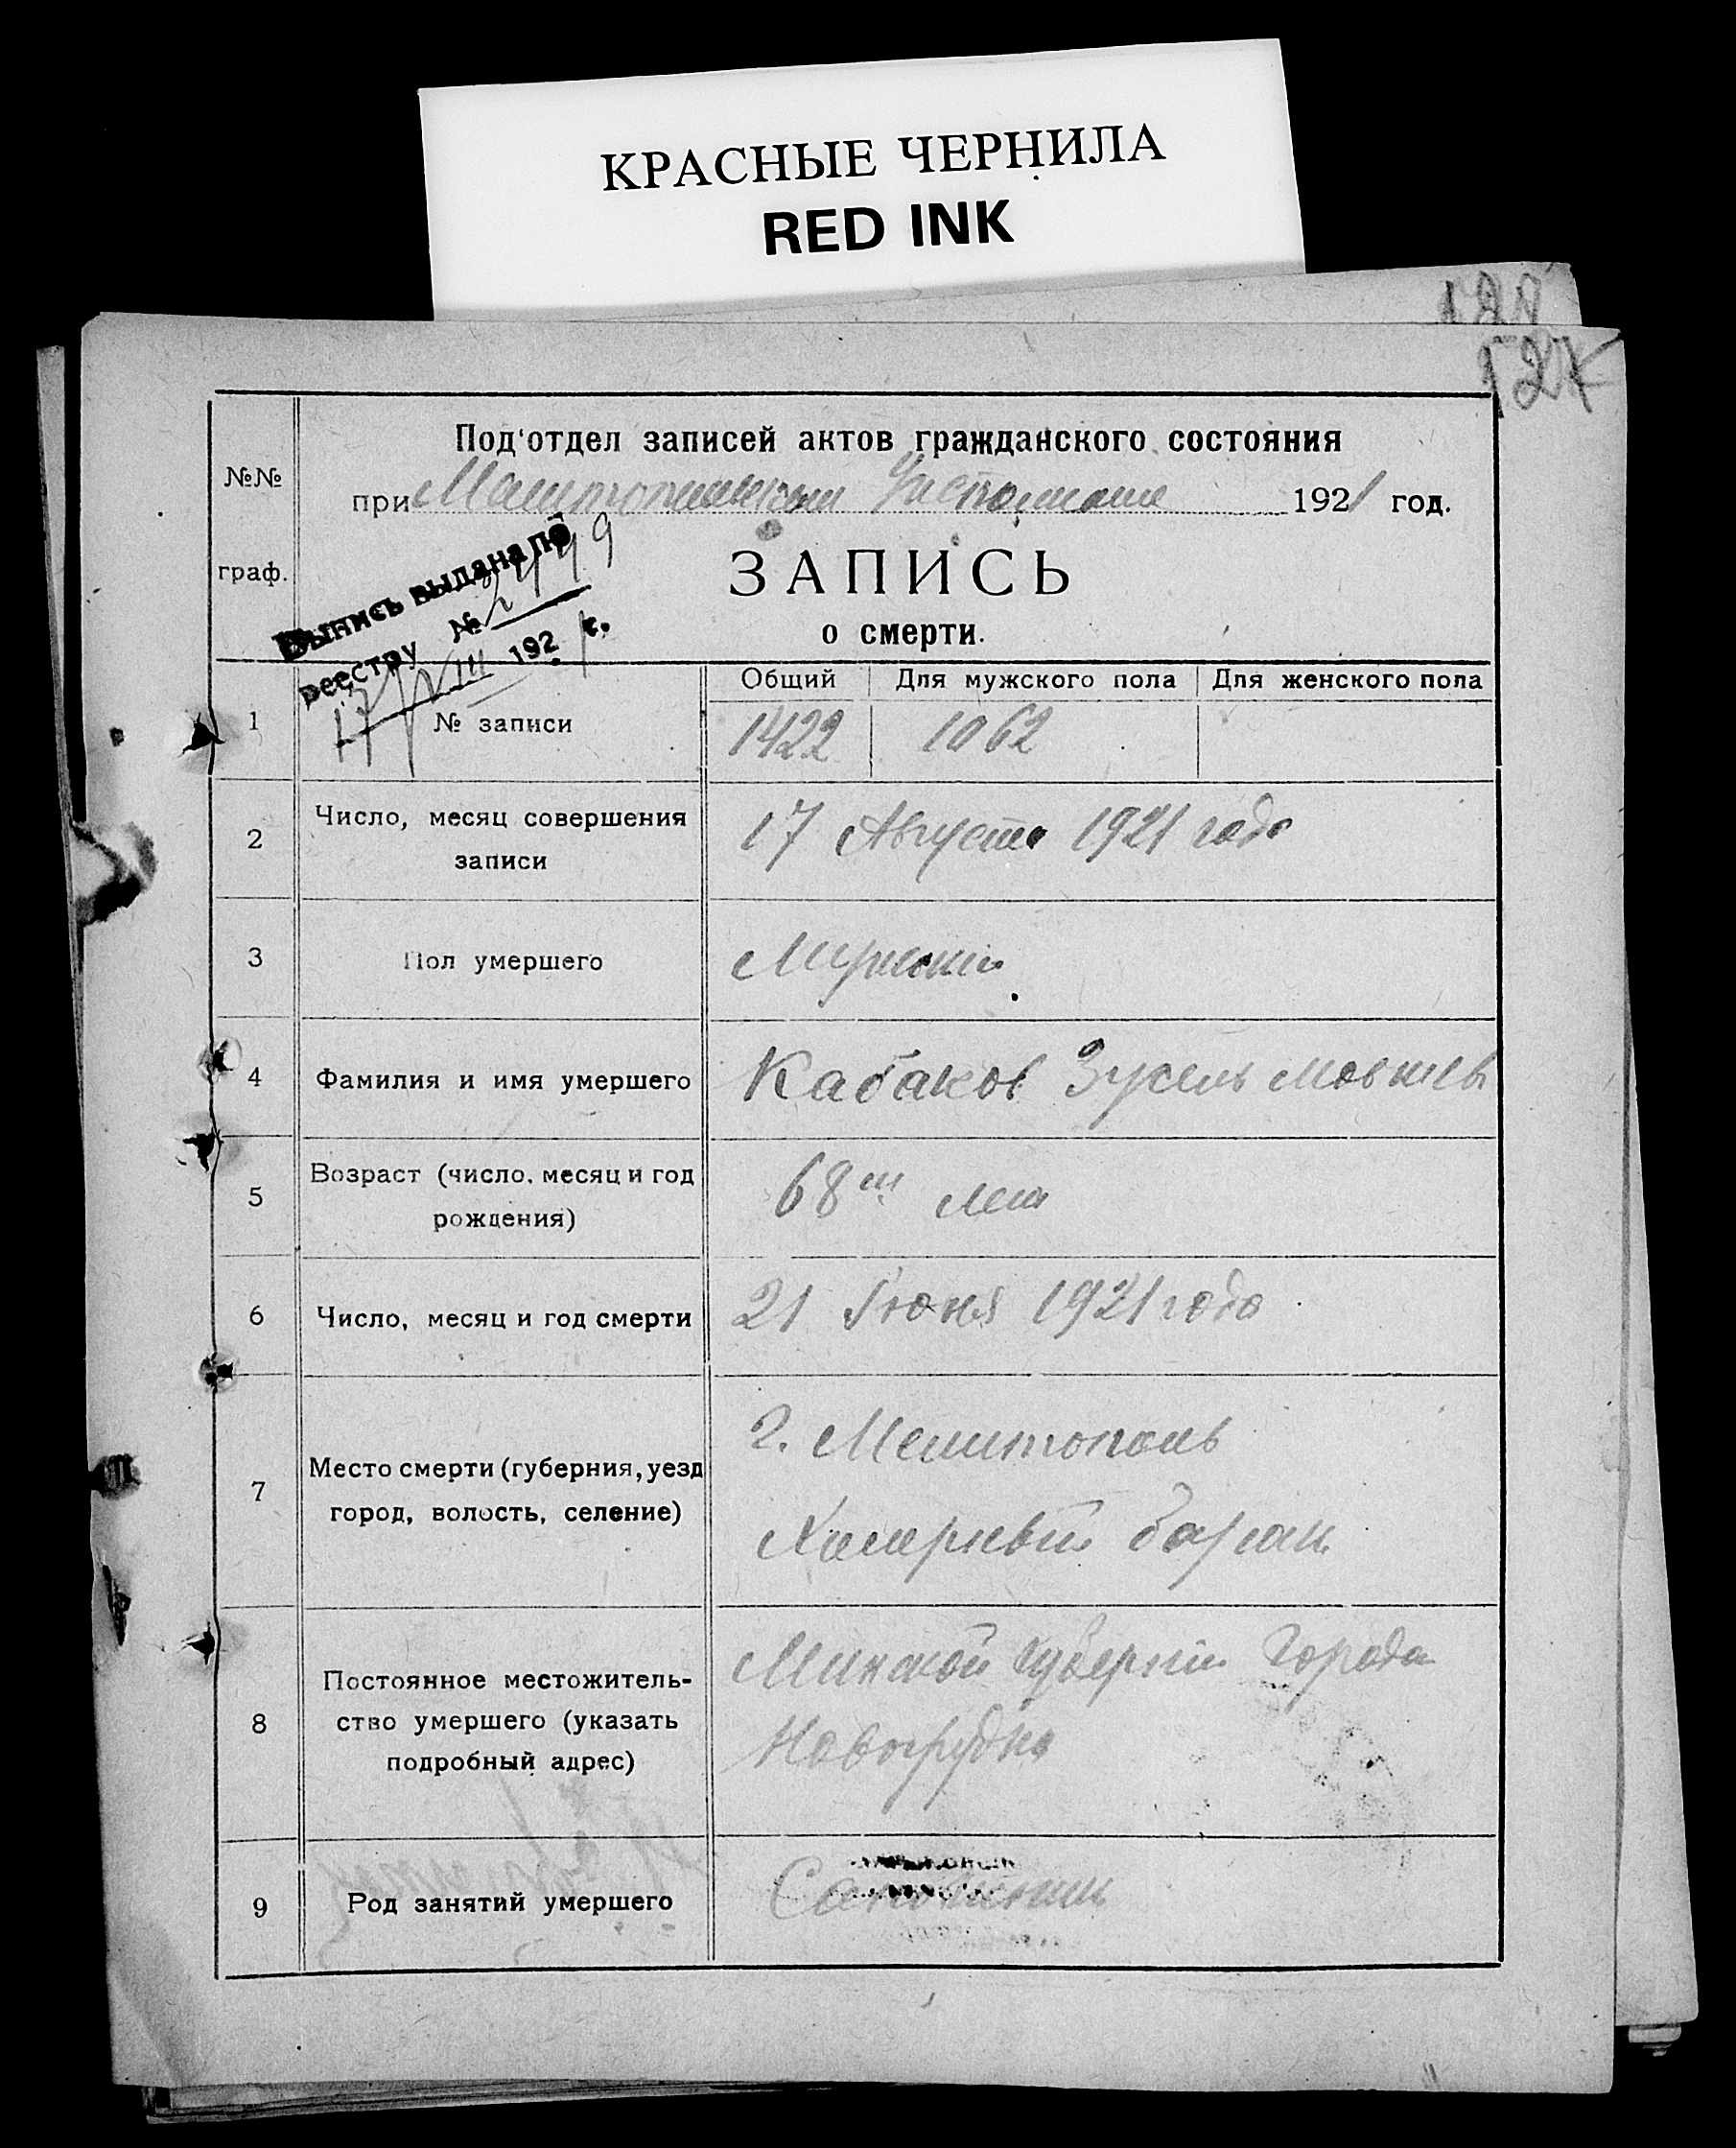 КРАСНЫЕ ЧЕРНИЛА
RED INK
128
127
№№ граф.
Под'отдел записей актов гражданского состояния
при Мелитопольском 1921 год.
ЗАПИСЬ
о смерти.
Выпись выдана по
реестру № 2449
17/VIII 1921 г.
Общий Для мужского пола Для женского пола
1 № записи 1422 1062
2 Число, месяц совершения
записи
17 Августа 1921 года
3 Пол умершего Мужской
4 Фамилия и имя умершего Кабаков Зусель Мовшев
5 Возраст (число, месяц и год
рождения)
68 ми лет
6 Число, месяц и год смерти 21 Июня 1921 года
7 Место смерти (губерния, уезд
город, волость, селение)
г. Мелитополь
Холерный барак
8 Постоянное местожитель-
ство умершего (указать
подробный адрес)
Минской губернии Города
Новогрудка
9 Род занятий умершего Сапожник